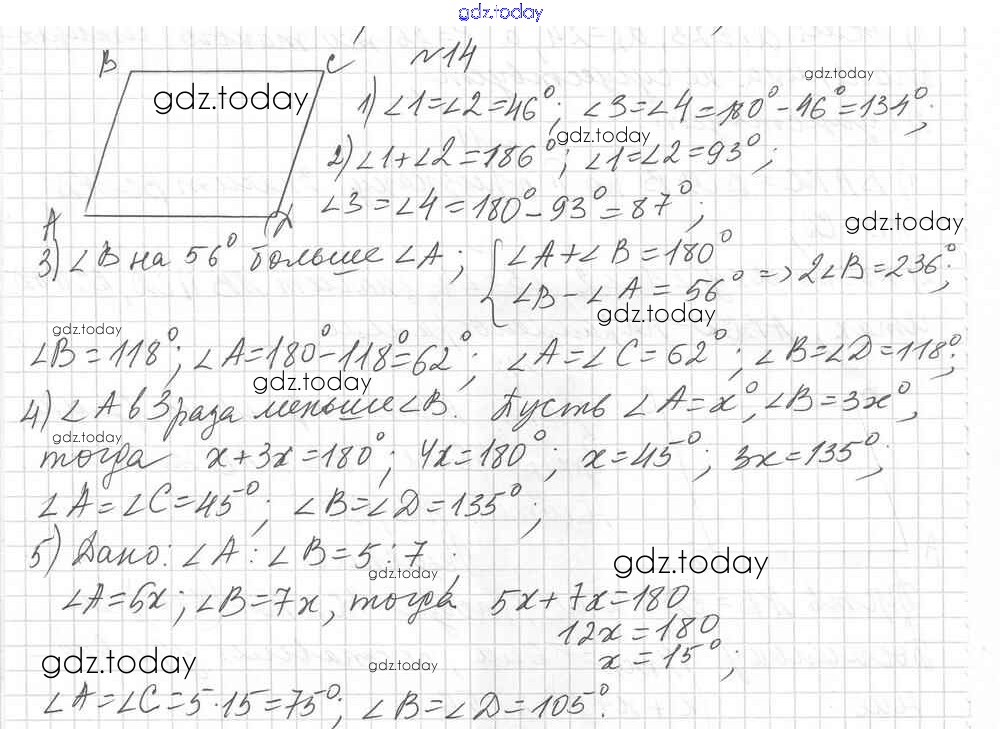 gdz.today
B C №14
gdz.today gdz.today
1) ∠1=∠2=46°; ∠3=∠4=180°-46°=134°;
gdz.today
2) ∠1+∠2=186°; ∠1=∠2=93°;
∠3=∠4=180°-93°=87°;
A D gdz.today
3) ∠B на 56° больше ∠A; { ∠A+∠B=180°
∠B-∠A=56° => 2∠B=236°;
gdz.today gdz.today
∠B=118°; ∠A=180°-118°=62°; ∠A=∠C=62°; ∠B=∠D=118°;
gdz.today
4) ∠A в 3 раза меньше ∠B. Пусть ∠A=x°, ∠B=3x°,
gdz.today
тогда x+3x=180°; 4x=180°; x=45°; 3x=135°;
∠A=∠C=45°; ∠B=∠D=135°;
5) Дано: ∠A:∠B=5:7;
gdz.today gdz.today
∠A=5x; ∠B=7x, тогда 5x+7x=180
12x=180
x=15°;
gdz.today gdz.today
∠A=∠C=5·15=75°; ∠B=∠D=105°.